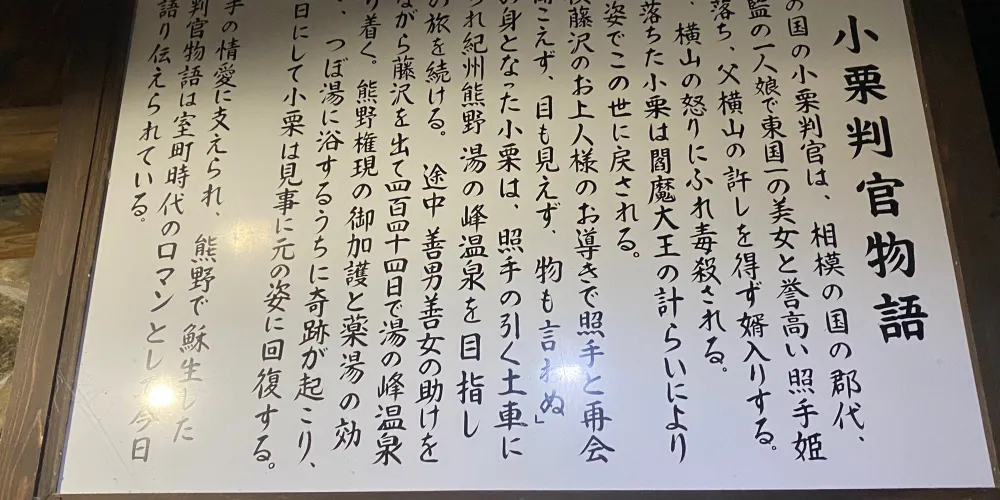 小栗判官物語
の国の小栗判官は、相模の国の郡代、
監の一人娘で東国一の美女と誉高い照手姫
落ち、父横山の許しを得ず婿入りする。
、横山の怒りにふれ毒殺される。
落ちた小栗は閻魔大王の計らいにより
姿でこの世に戻される。
藤沢のお上人様のお導きで照手と再会
聞こえず、目も見えず、物も言わぬ」
の身となった小栗は、照手の引く土車に
られ紀州熊野湯の峰温泉を目指し
の旅を続ける。途中 善男善女の助けを
ながら藤沢を出て四百四十四日で湯の峰温泉
り着く。熊野権現の御加護と薬湯の効
、つぼ湯に浴するうちに奇跡が起こり、
日にして小栗は見事に元の姿に回復する。
手の情愛に支えられ、熊野で蘇生した
判官物語は室町時代のロマンとして今日
語り伝えられている。